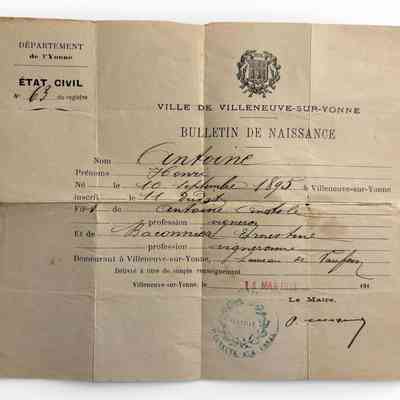 DÉPARTEMENT
de l'Yonne
ÉTAT CIVIL
N° 63 du registre
VILLE DE VILLENEUVE-SUR-YONNE
BULLETIN DE NAISSANCE
Nom Antoine
Prénoms Henri
Né le 10 septembre 1895 à Villeneuve-sur-Yonne
inscrit le 11 dudit
Fils de Antoine Anatole
profession vigneron
Et de Baconnier Ernestine
profession vigneronne
Demeurant à Villeneuve-sur-Yonne, hameau de
Délivré à titre de simple renseignement
Villeneuve-sur-Yonne, le 14 MAR 191
Le Maire,
MAIRIE